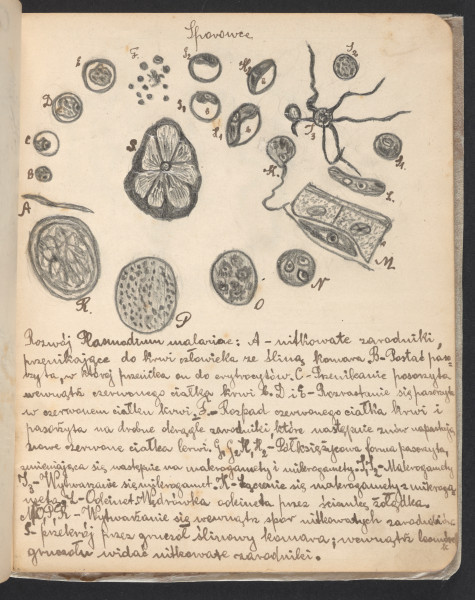 Sporowce.
E.
F.
J₂
H₂
J₂
D.
G₁
G₁
J₃
H₁
C
S.
K.
B
L.
A
M.
R.
P
O
N
Rozwój Plasmodium malariae: A - nitkowate zarodniki,
przenikające do krwi człowieka ze śliną komara. B - Postać paso-
żyta, w której przenika on do erytrocytów. C - Przenikanie pasożyta
wewnątrz czerwonego ciałka krwi. C. D i E - Rozrastanie się pasożyta
w czerwonem ciałku krwi. F. - Rozpad czerwonego ciałka krwi i
pasożyta na drobne okrągłe zarodniki które następnie znów napastują
nowe czerwone ciałka krwi. G₁ G₂ H₁ H₂ - Półksiężycowa forma pasożyta,
zmieniająca się następnie na makrogamety i mikrogamety. J₁ J₂ - Makrogamety.
J₃ - Wytwarzanie się mikrogamet. K - Łączenie się makrogamety z mikroga-
metą. L - Ookinet. M - Wędrówka ookineta przez ściankę żołądka.
N O P R. - Wytwarzanie się wewnątrz spor nitkowatych zarodników
S - przekrój przez gruczoł ślinowy komara; wewnątrz komórek
gruczołu widać nitkowate zarodniki.